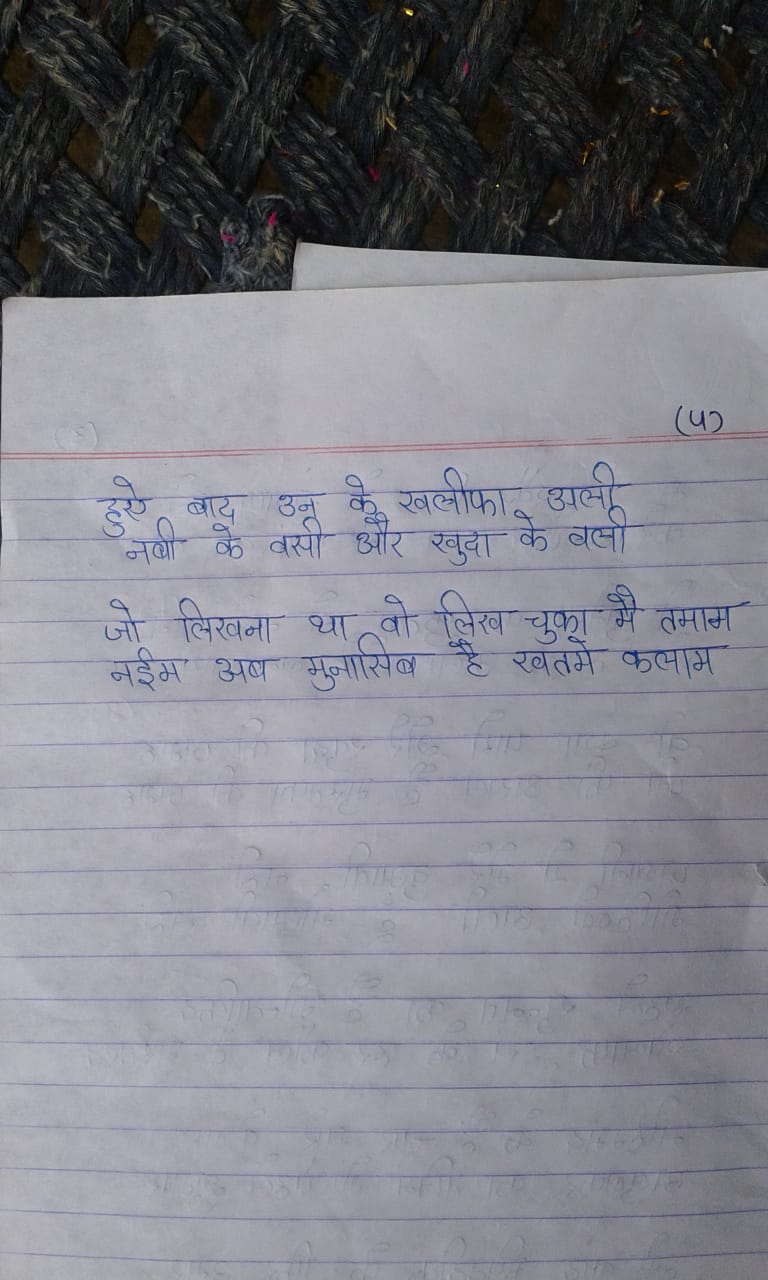 (५)
हुऐ बाद उन के खलीफा अली
नबी के वसी और खुदा के वली
जो लिखना था वो लिख चुका मै तमाम
नईम अब मुनासिब है खतमे कलाम